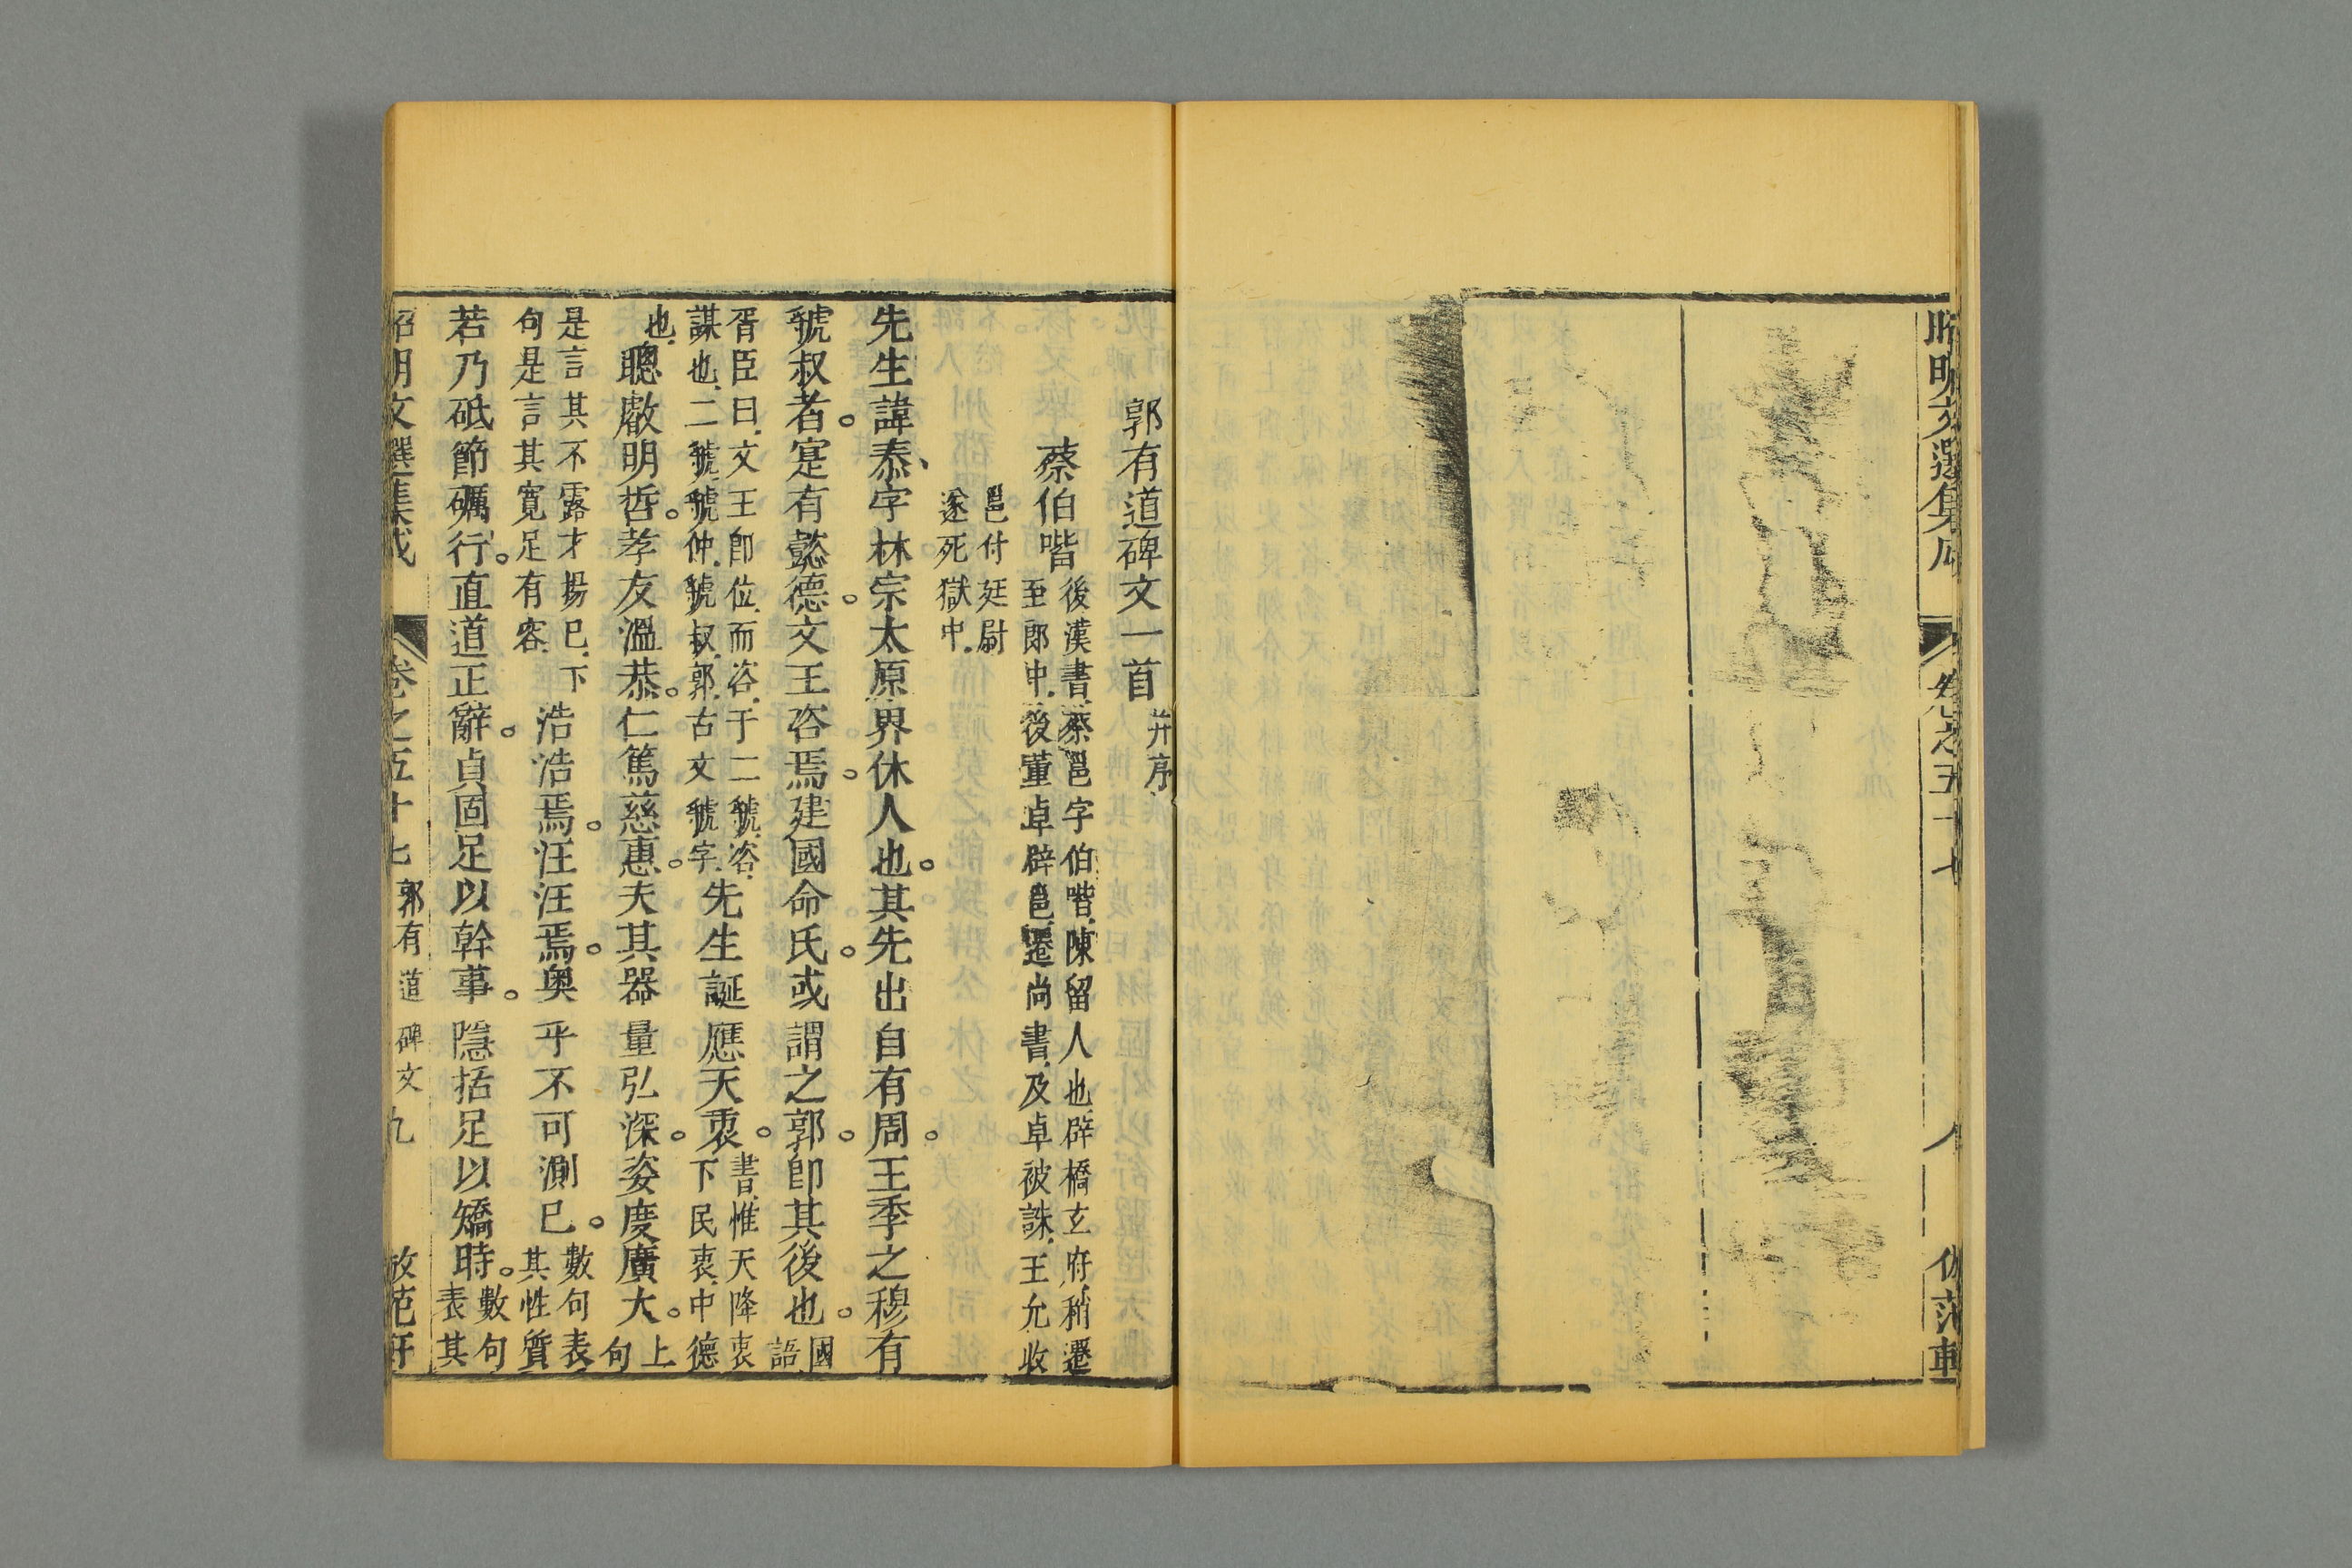 昭明文選集成
卷之五十七
八
郭有道碑文一首
并序
蔡伯喈
後漢書蔡邕字伯喈陳留人也辟橋玄府稍遷
至郎中後董卓辟邕遷尚書及卓被誅王允收
邕付廷尉
遂死獄中
先生諱泰字林宗太原界休人也其先出自有周王季之穆有
虢叔者寔有懿德文王咨焉建國命氏或謂之郭卽其後也
國
語
胥臣曰文王卽位而咨于二虢咨
謀也二虢虢仲虢叔郭古文虢字
先生誕應天衷
書惟天降衷
下民衷中德
也
聰叡明哲孝友溫恭仁篤慈惠夫其器量弘深姿度廣大
上
句
是言其不露才揚已下
句是言其寬足有容
浩浩焉汪汪焉奧乎不可測已
數句表
其性質
若乃砥節礪行直道正辭貞固足以幹事隱括足以矯時
數句
表其
昭明文選集成
卷之五十七
郭有道碑文
九
倣范軒